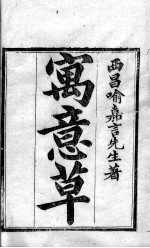 西昌喻嘉言先生著
寓意草